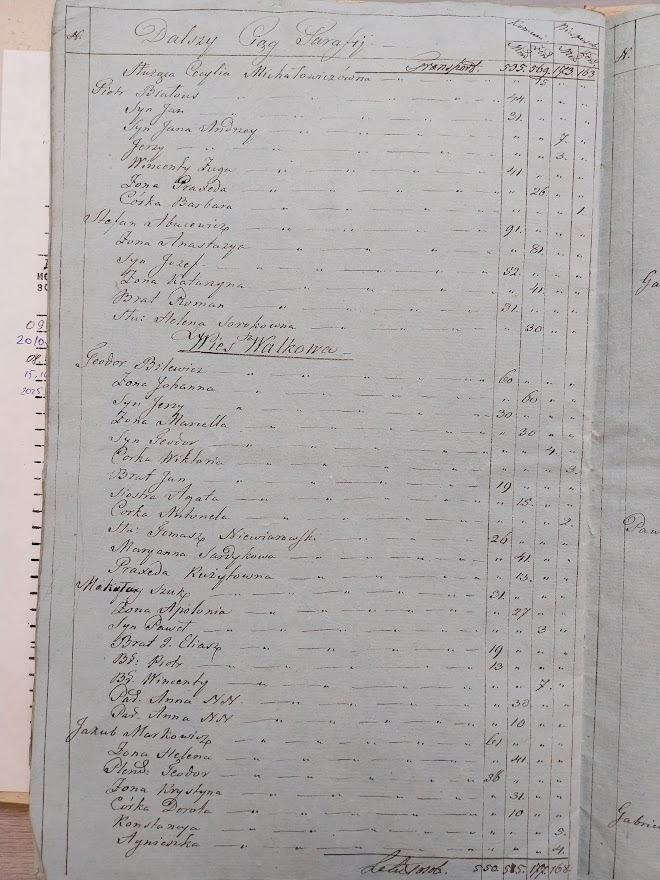 N. Dalszy Ciąg Parafij
Transport. 535. 569. 173. 163.
Służąca Cecylia Michałowiczówna „ 15. „ „
Piotr Białous 44. „ „ „
Syn Jan 31. „ „ „
Syn Jana Andrzey „ „ 7. „
Jerzy „ „ 3. „
Wincenty Zuga 41. „ „ „
Żona Praxeda „ 26. „ „
Córka Barbara „ „ „ 1.
Stefan Abucewicz 91. „ „ „
Żona Anastazya „ 81. „ „
Syn Jozef 52. „ „ „
Żona Katarzyna „ 41. „ „
Brat Roman 31. „ „ „
Słu: Helena Sorokowna „ 30 „ „
Wieś Walkowa
Teodor Bilewicz 60. „ „ „
Żona Johanna „ 60 „ „
Syn Jerzy 30 „ „ „
Żona Marcella „ 30 „ „
Syn Teodor „ „ 4. „
Corka Wiktoria „ „ „ 3.
Brat Jan 19 „ „ „
Siostra Agata „ 15. „ „
Corka Antonela „ „ „ 2.
Słu: Tomasz Niewiarowski 26 „ „ „
Maryanna Sardykowa „ 41. „ „
Praxeda Kużyłowna „ 13. „ „
Szuk 31. „ „ „
Żona Apolonia „ 27 „ „
Syn Paweł „ „ 3 „
Brat 2. Eliasz 19 „ „ „
Br: Piotr 13 „ „ „
Br. Wincenty „ „ 7. „
Pas. Anna NN. „ 30. „ „
Pas. Anna NN „ 10 „ „
Jakub Markowicz 61 „ „ „
Żona Helena „ 41. „ „
Teodor 36 „ „ „
Żona Krystyna „ 31. „ „
Córka Dorota „ 10 „ „
Konstancya „ „ „ 9.
Agnieszka „ „ „ 4.
550. 585. 177. 168.
09
2010
15.
2025
N.
Ga
Paw
Gabrie